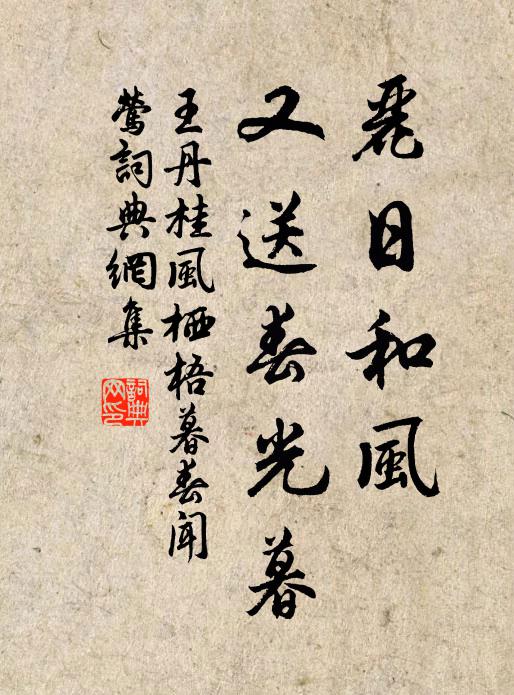 麗日和風
又送春光暮
王丹桂風栖梧暮春聞
鶯詞典網集
詞典
网印